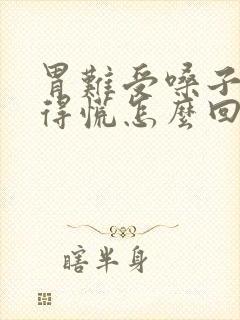 胃難受嗓子
得慌怎麼回
瞎半身